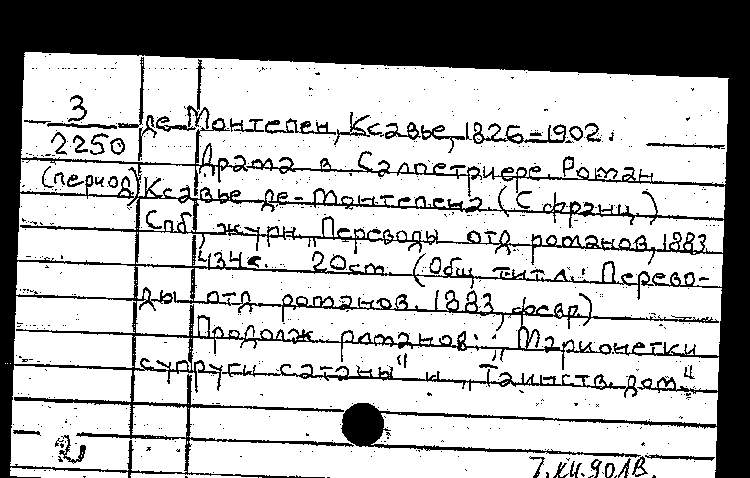 3
2250
(период)
де Монтепен, Ксавье, 1826-1902.
Драма в Салпетриере. Роман
Ксавье де-Монтепена (С франц.)
Спб, журн. "Переводы отд. романов, 1883
434с. 20см. (Общ. тит. л.: Перево-
ды отд. романов. 1883, февр)
Продолж. романов: "Марионетки
супруги сатаны" и "Таинств. дом."